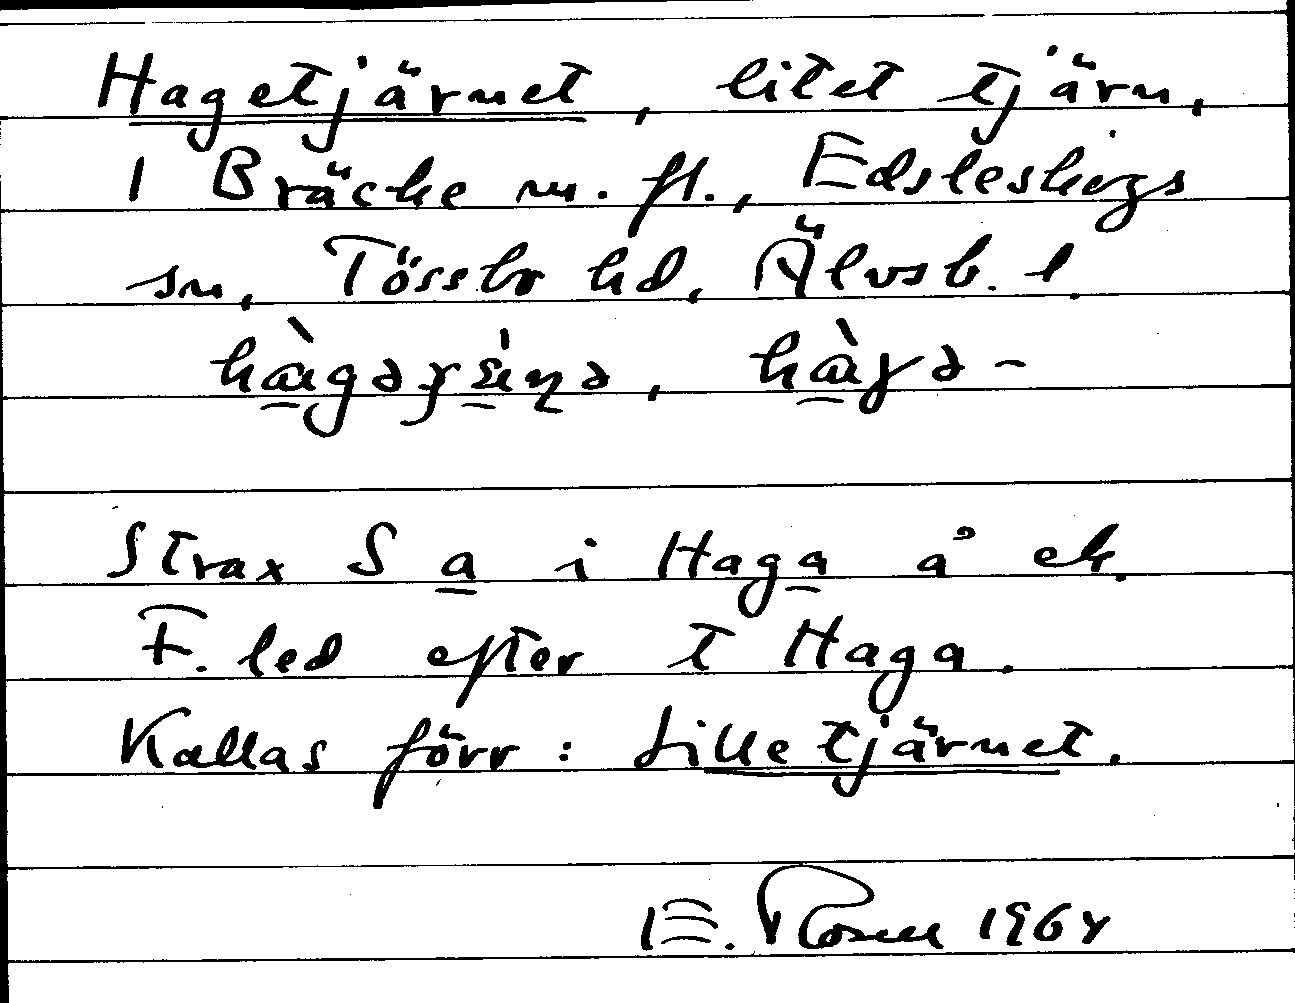 Hagetjärnet, litet tjärn,
1 Bräcke m. fl., Edsleskogs
sn, Tössbo hd, Älvsb. l.
Strax S a i Haga å ek.
F. led efter t Haga.
Kallas förr: Lilletjärnet.
E. Rosell 1964